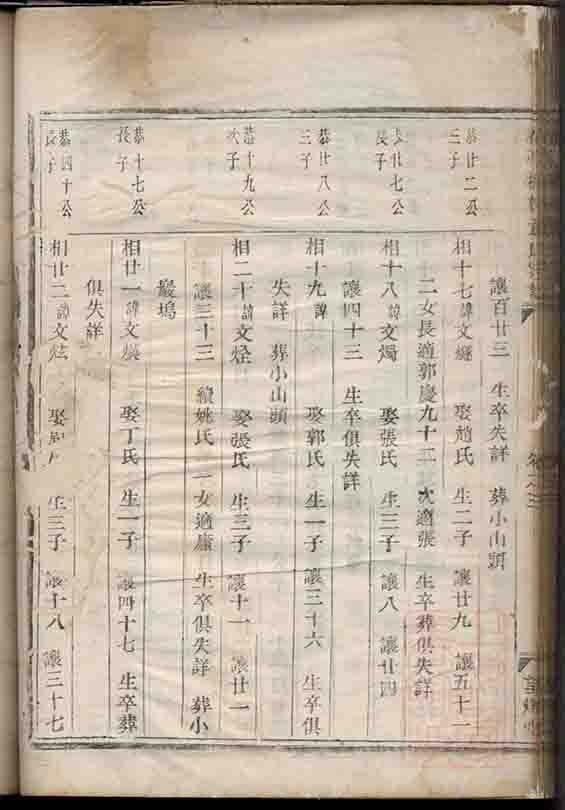 讓百廿三 生卒失詳 葬小山頭
恭廿二公
三子
相十七諱文 娶趙氏 生二子 讓廿九 讓五十二
二女長適郭慶九十二 次適張 生卒葬俱失詳
恭廿七公
長子
相十八諱文燭 娶張氏 生三子 讓八 讓廿四
讓四十三 生卒俱失詳
恭廿八公
三子
相十九諱 娶郭氏 生一子 讓三十六 生卒俱
失詳 葬小山頭
恭十九公
次子
相二十諱文烇 娶張氏 生三子 讓十一 讓廿一
讓三十三 續姚氏 一女適盧 生卒俱失詳 葬小
巖塢
恭十七公
長子
相廿一諱文 娶丁氏 生一子 讓四十七 生卒葬
俱失詳
恭四十公
長子
相廿二諱文炫 娶 生三子 讓十八 讓三十七